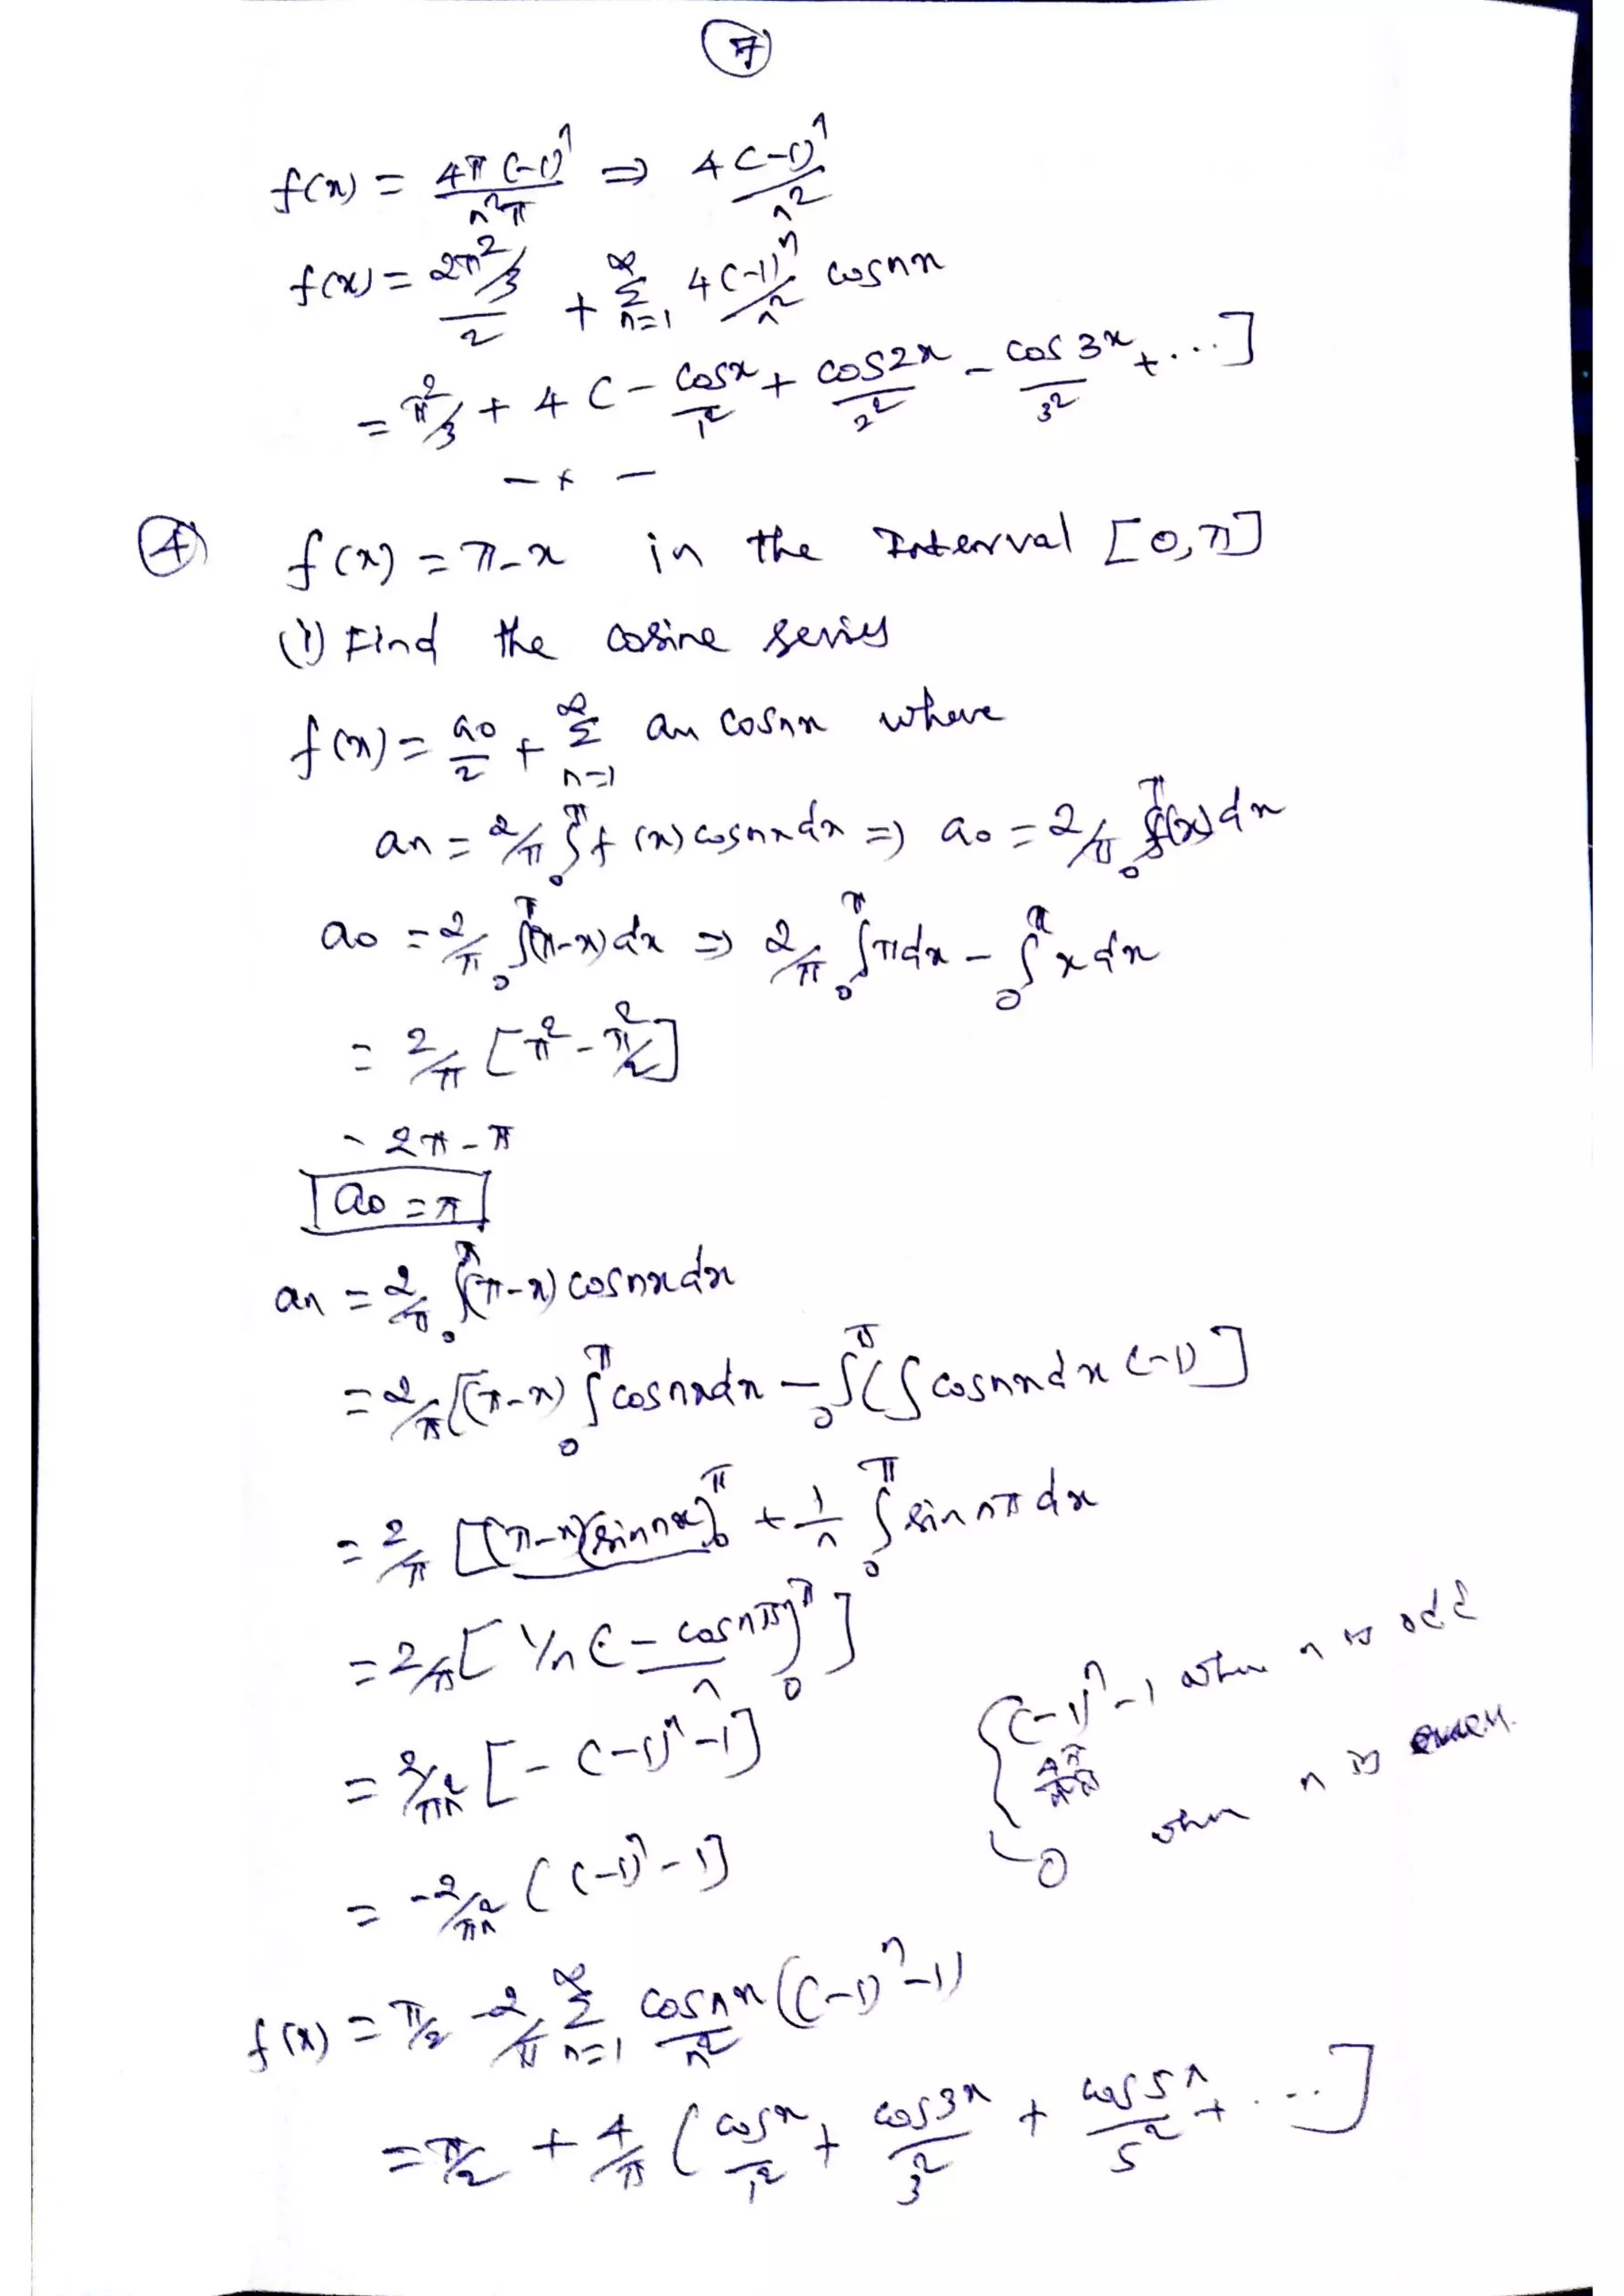 7
f(x) = 4π(-1)^n / n²π ⇒ 4(-1)^n / n²
f(x) = (2π²/3)/2 + Σ_{n=1}^{∞} 4(-1)^n / n² cosnx
= π²/3 + 4 ( - cosx/1² + cos2x/2² - cos3x/3² + ...]
— x —
④ f(x) = π-x in the Interval [0,π]
(i) Find the cosine series
f(x) = a0/2 + Σ_{n=1}^{∞} an cosnx where
an = 2/π ∫_0^π f(x) cosnxdx ⇒ a0 = 2/π ∫_0^π f(x)dx
a0 = 2/π ∫_0^π (π-x)dx ⇒ 2/π ∫_0^π πdx - ∫_0^π x dx
= 2/π [π² - π²/2]
- 2π - π
a0 = π
an = 2/π ∫_0^π (π-x) cosnxdx
= 2/π [(π-x) ∫_0^π cosnxdx - ∫_0^π (∫ cosnxdx (-1)]
= 2/π [[(π-x)(sinnx)]_0^π + 1/n ∫_0^π sin nπ dx
= 2/π [ 1/n (- cosnπ/n)_0^π ]
= 2/πn² [ - (-1)^n - 1]
= -2/πn² ( (-1)^n - 1]
{ (-1)^n - 1 when n is odd
0 when n is even.
f(x) = π/2 - 2/π Σ_{n=1}^{∞} cosnx/n² ((-1)^n - 1)
= π/2 + 4/π ( cosx/1² + cos3x/3² + cos5x/5² + ...]